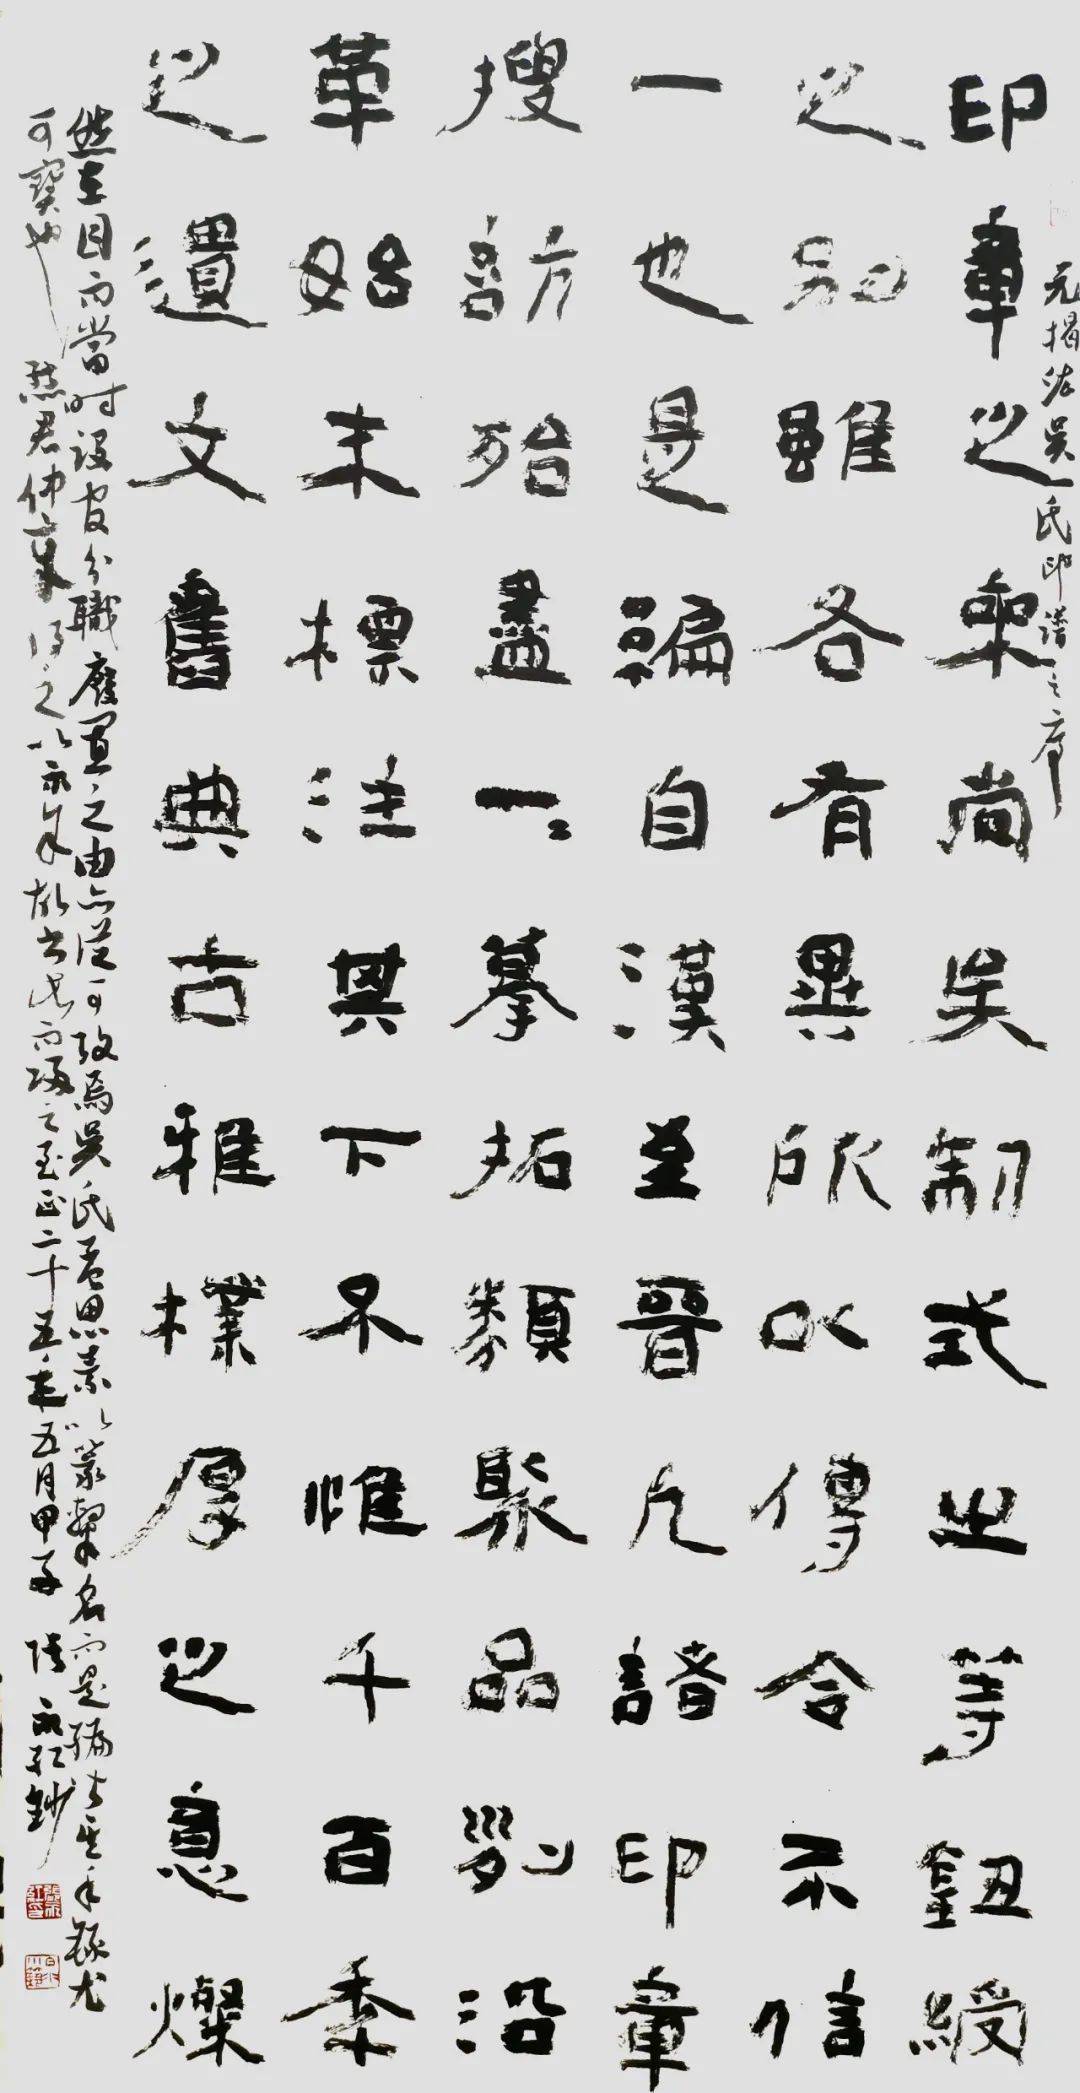 元揭汯吴氏印譜之序
印章之來尚矣制式之等鈕綬
之別雖各有異所以傳令示信
一也是編自漢至晉凡諸印章
搜訪殆盡一一摹拓類聚品列沿
革始末標注其下不惟千百秊
之遺文舊典古雅樸厚之意燦
然在目而當时設官分職廢置之由亦從可攷焉吳氏孟思素以篆隸名而是編皆其手錄尤
可寶也 熊君仲章得之以示余故書此而歸之至正二十五年五月甲子 張永紅鈔